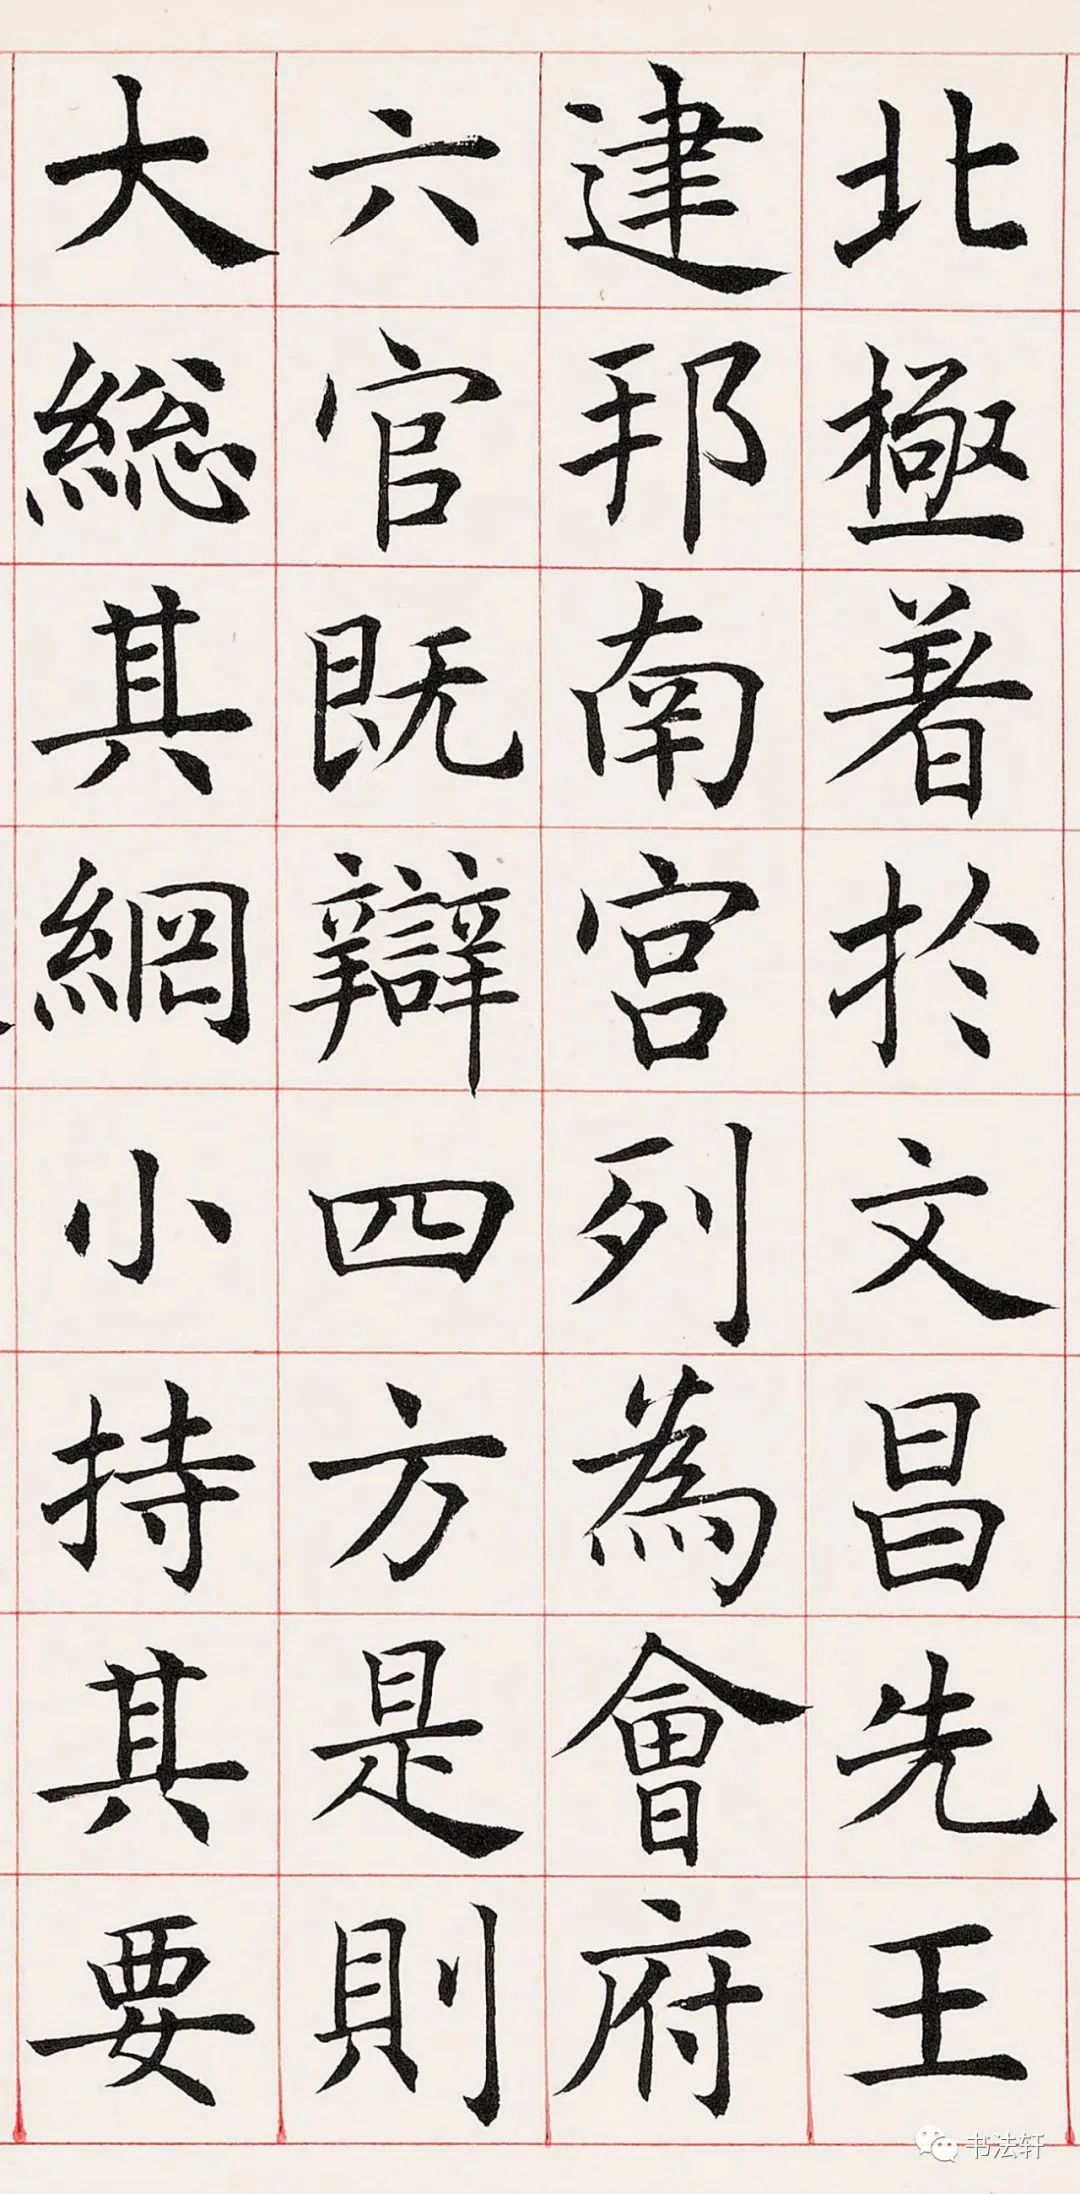 北極著於文昌先王
建邦南宫列為會府
六官既辯四方是則
大総其綱小持其要
书法轩